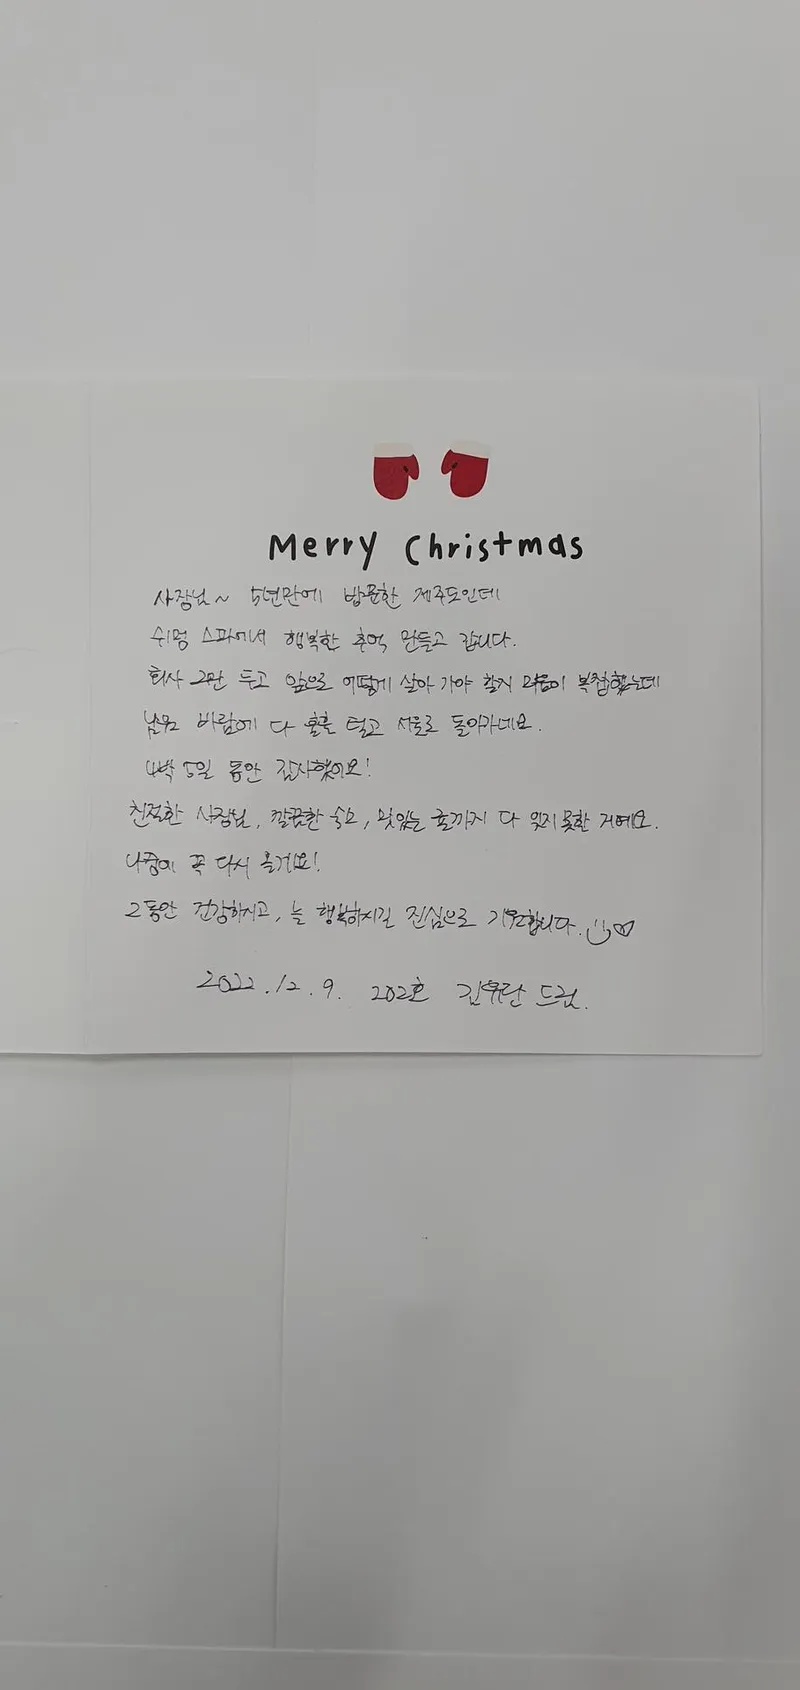 Merry Christmas
사장님~ 5년만에 방문한 제주도인데
쉬멍 스파에서 행복한 추억 만들고 갑니다.
회사 그만 두고 앞으로 어떻게 살아 가야 할지 마음이 복잡했는데
바람에 다 훌훌 털고 서울로 돌아가네요.
4박 5일 동안 감사했어요!
친절한 사장님, 깔끔한 숙소, 맛있는 조식까지 다 잊지 못한 거예요.
나중에 꼭 다시 올게요!
그동안 건강하시고, 늘 행복하시길 진심으로 기원합니다.
2022.12.9. 202호 드림.